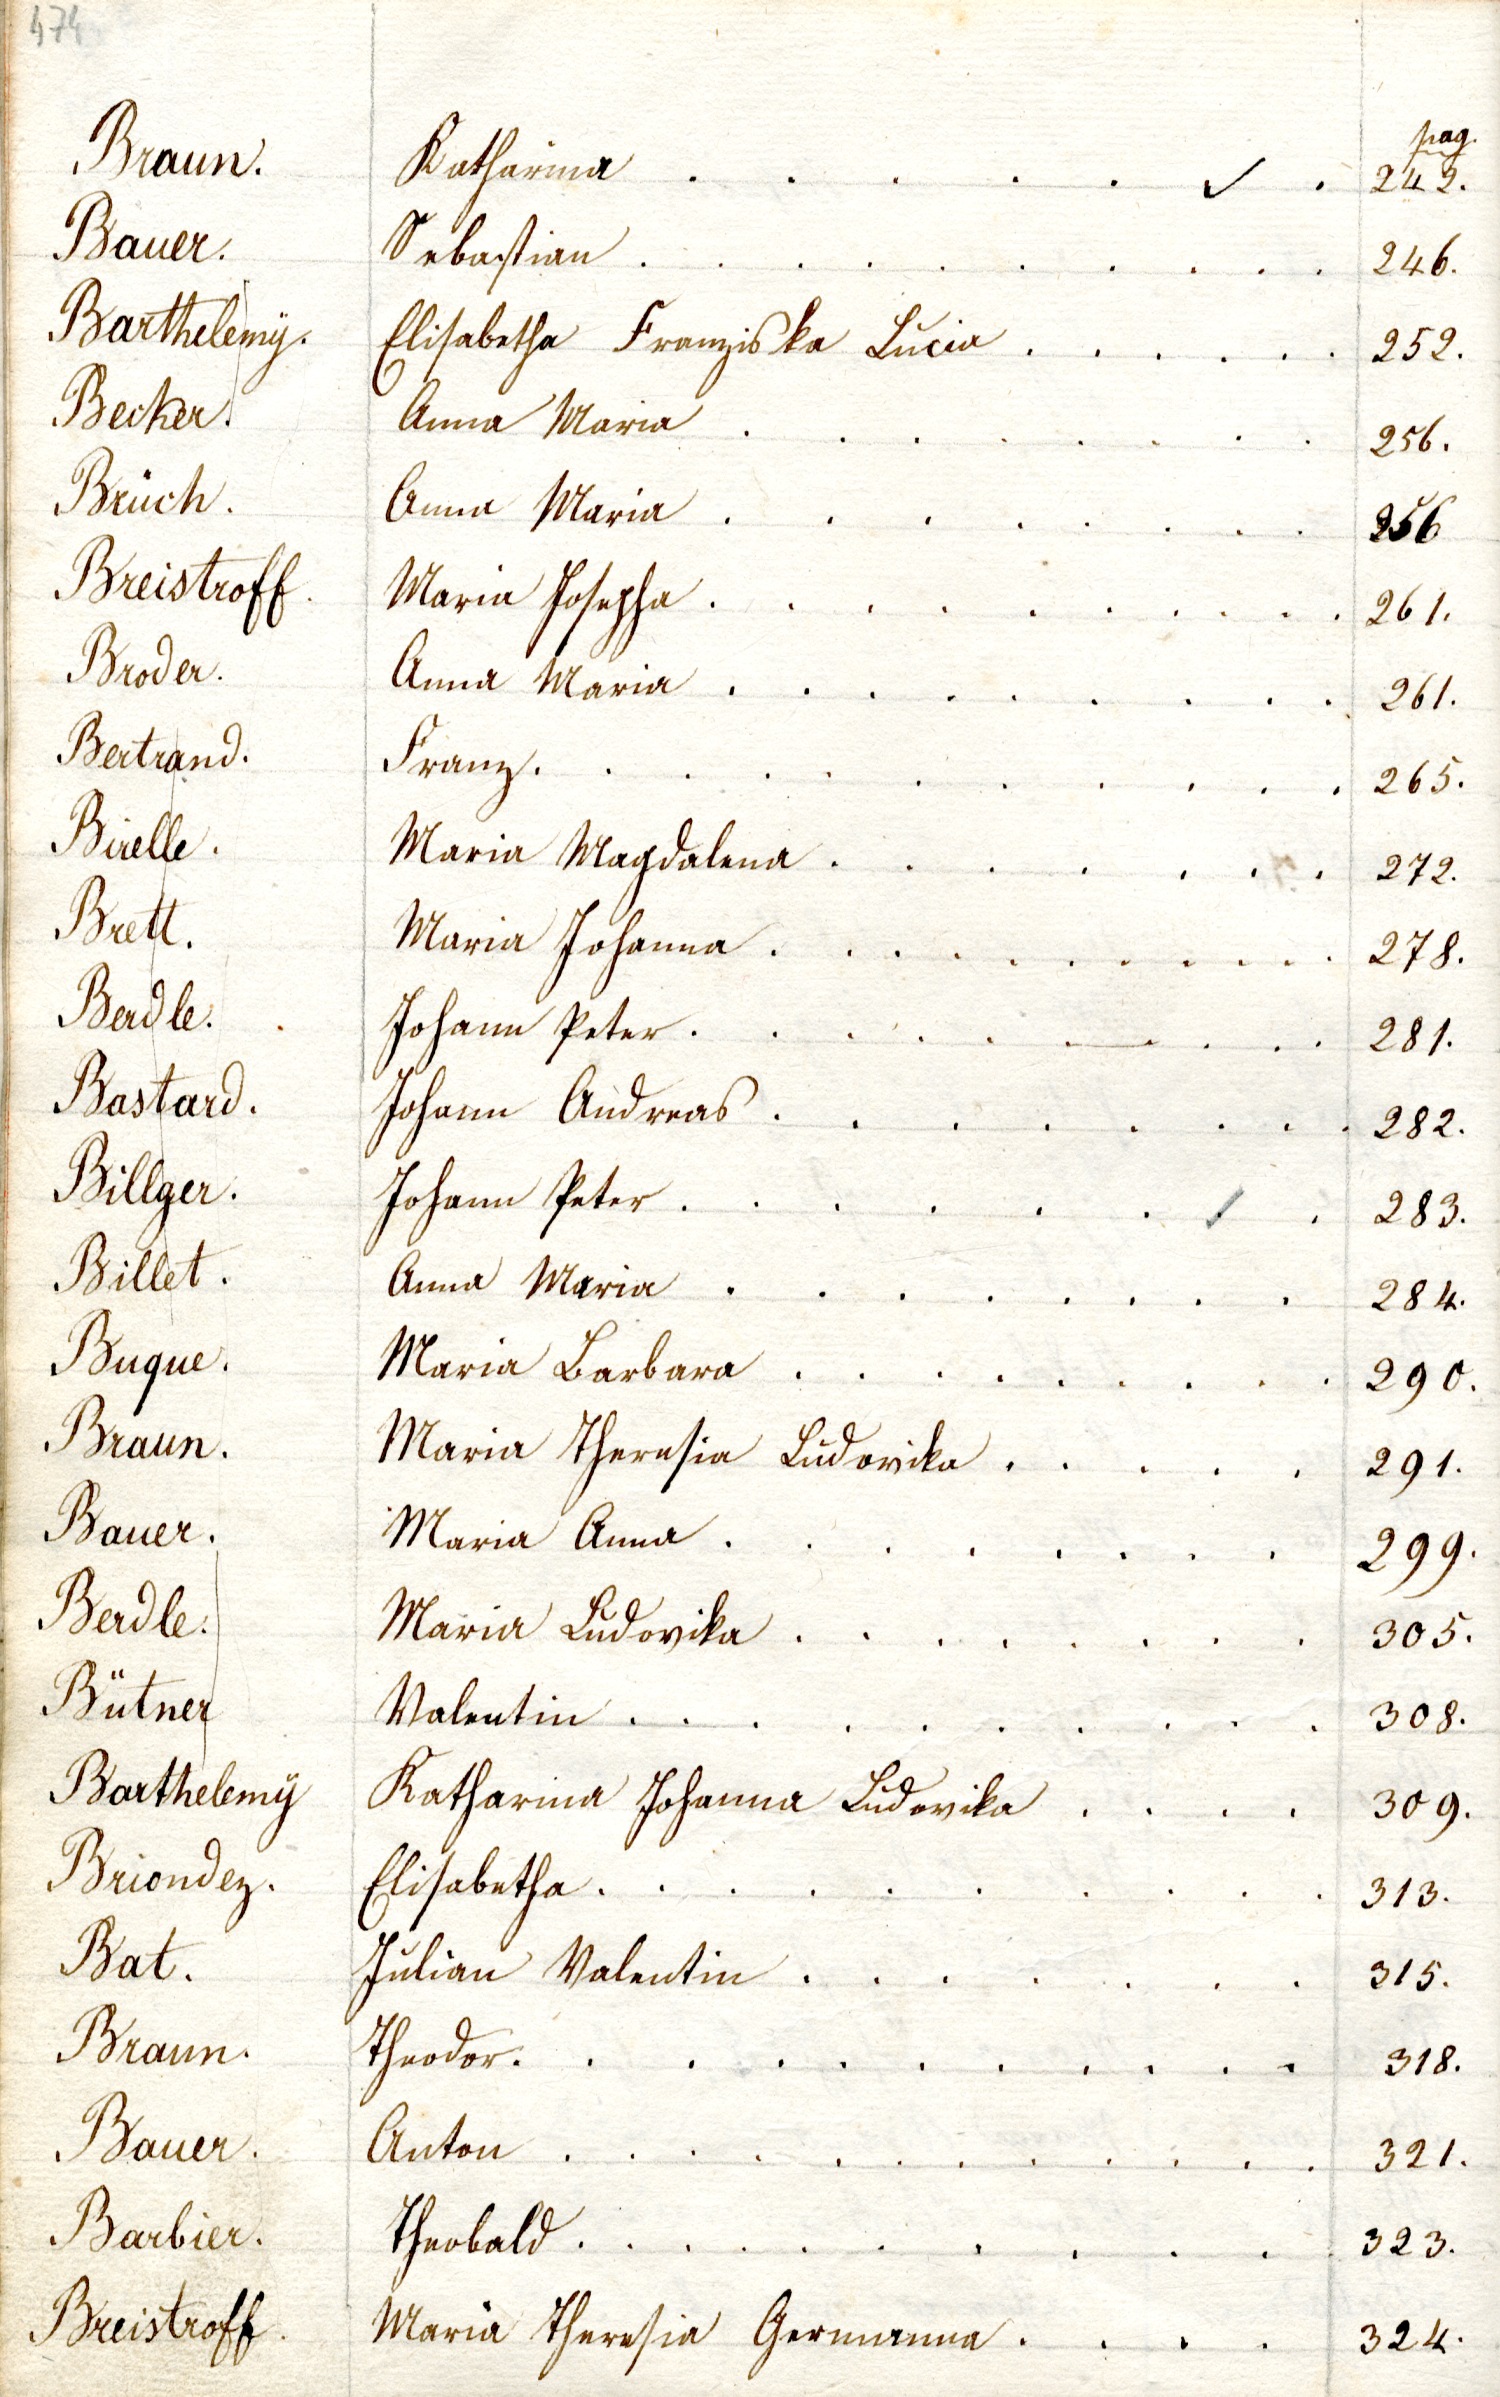 474
pag.
Braun. Katharina . . . . . . ✓ . 242.
Bauer. Sebastian . . . . . . . . . 246.
Barthelemÿ. Elisabetha Franziska Lucia . . . . . . 252.
Becker. Anna Maria . . . . . . . . 256.
Brüch. Anna Maria . . . . . . . . 256
Breistroff. Maria Josepha . . . . . . . . . 261.
Broder. Anna Maria . . . . . . . . . 261.
Bertrand. Franz . . . . . . . . . . . 265.
Birelle. Maria Magdalena . . . . . . . 272.
Brett. Maria Johanna . . . . . . . . . 278.
Berdle. Johann Peter . . . . . . . . . 281.
Bastard. Johann Andreas . . . . . . . . 282.
Billger. Johann Peter . . . . . . ✓ . 283.
Billet. Anna Maria . . . . . . . . 284.
Buque. Maria Barbara . . . . . . . . 290.
Braun. Maria Theresia Ludovika . . . . . 291.
Bauer. Maria Anna . . . . . . . . 299.
Berdle. Maria Ludovika . . . . . . . . 305.
Bütner Valentin . . . . . . . . . . 308.
Barthelemÿ Katharina Johanna Ludovika . . . . 309.
Briondez. Elisabetha . . . . . . . . . . 313.
Bat. Julian Valentin . . . . . . . . 315.
Braun. Theodor . . . . . . . . . . 318.
Bauer. Anton . . . . . . . . . . . 321.
Barbier. Theobald . . . . . . . . . 323.
Breistroff. Maria Theresia Germanna . . . . 324.